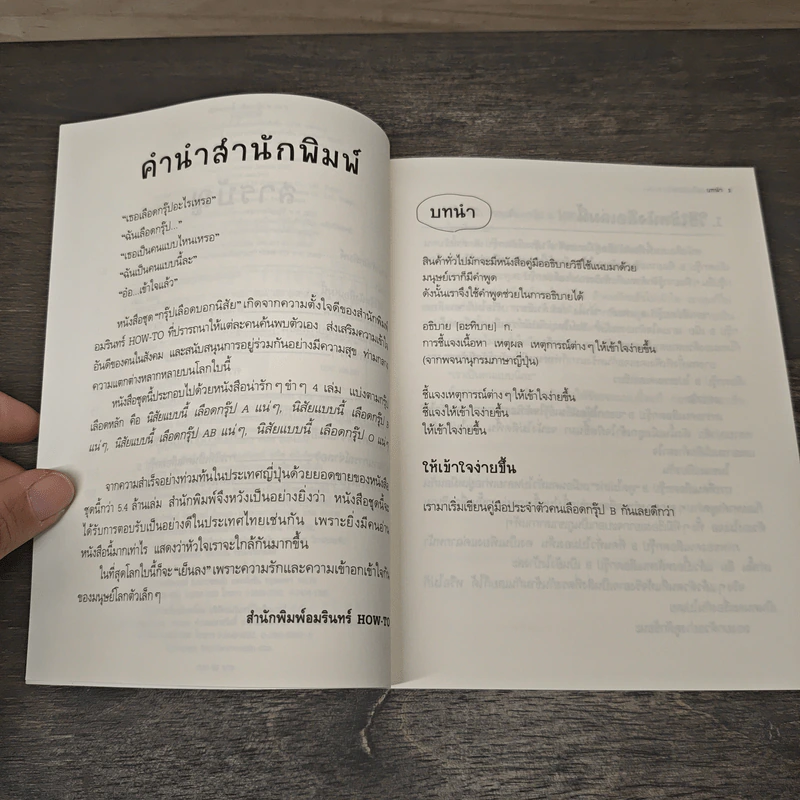 คำนำสำนักพิมพ์
“เธอเลือดกรุ๊ปอะไรเหรอ”
“ฉันเลือดกรุ๊ป...”
“เธอเป็นคนแบบไหนเหรอ”
“ฉันเป็นคนแบบนี้ละ”
“อ๋อ...เข้าใจแล้ว”
หนังสือชุด “กรุ๊ปเลือดบอกนิสัย” เกิดจากความตั้งใจดีของสำนักพิมพ์
อมรินทร์ HOW-TO ที่ปรารถนาให้แต่ละคนค้นพบตัวเอง ส่งเสริมความเข้าใจ
อันดีของคนในสังคม และสนับสนุนการอยู่ร่วมกันอย่างมีความสุข ท่ามกลาง
ความแตกต่างหลากหลายบนโลกใบนี้
หนังสือชุดนี้ประกอบไปด้วยหนังสือน่ารัก ๆ ขำ ๆ 4 เล่ม แบ่งตามกรุ๊ป
เลือดหลัก คือ นิสัยแบบนี้ เลือดกรุ๊ป A แน่ ๆ, นิสัยแบบนี้ เลือดกรุ๊ป B
แน่ ๆ, นิสัยแบบนี้ เลือดกรุ๊ป AB แน่ ๆ, นิสัยแบบนี้ เลือดกรุ๊ป O แน่ ๆ
จากความสำเร็จอย่างท่วมท้นในประเทศญี่ปุ่นด้วยยอดขายของหนังสือ
ชุดนี้กว่า 5.4 ล้านเล่ม สำนักพิมพ์จึงหวังเป็นอย่างยิ่งว่า หนังสือชุดนี้จะ
ได้รับการตอบรับเป็นอย่างดีในประเทศไทยเช่นกัน เพราะยิ่งมีคนอ่าน
หนังสือนี้มากเท่าไร แสดงว่าหัวใจเราจะใกล้กันมากขึ้น
ในที่สุดโลกใบนี้ก็จะ “เย็นลง” เพราะความรักและความเข้าอกเข้าใจกัน
ของมนุษย์โลกตัวเล็ก ๆ
สำนักพิมพ์อมรินทร์ HOW-TO
บทนำ 5
บทนำ
สินค้าทั่วไปมักจะมีหนังสือคู่มืออธิบายวิธีใช้แนบมาด้วย
มนุษย์เราก็มีคำพูด
ดังนั้นเราจึงใช้คำพูดช่วยในการอธิบายได้
อธิบาย [อะทิบาย] ก.
การชี้แจงเนื้อหา เหตุผล เหตุการณ์ต่าง ๆ ให้เข้าใจง่ายขึ้น
(จากพจนานุกรมภาษาญี่ปุ่น)
ชี้แจงเหตุการณ์ต่าง ๆ ให้เข้าใจง่ายขึ้น
ชี้แจงให้เข้าใจง่ายขึ้น
ให้เข้าใจง่ายขึ้น
ให้เข้าใจง่ายขึ้น
เรามาเริ่มเขียนคู่มือประจำตัวคนเลือดกรุ๊ป B กันเลยดีกว่า